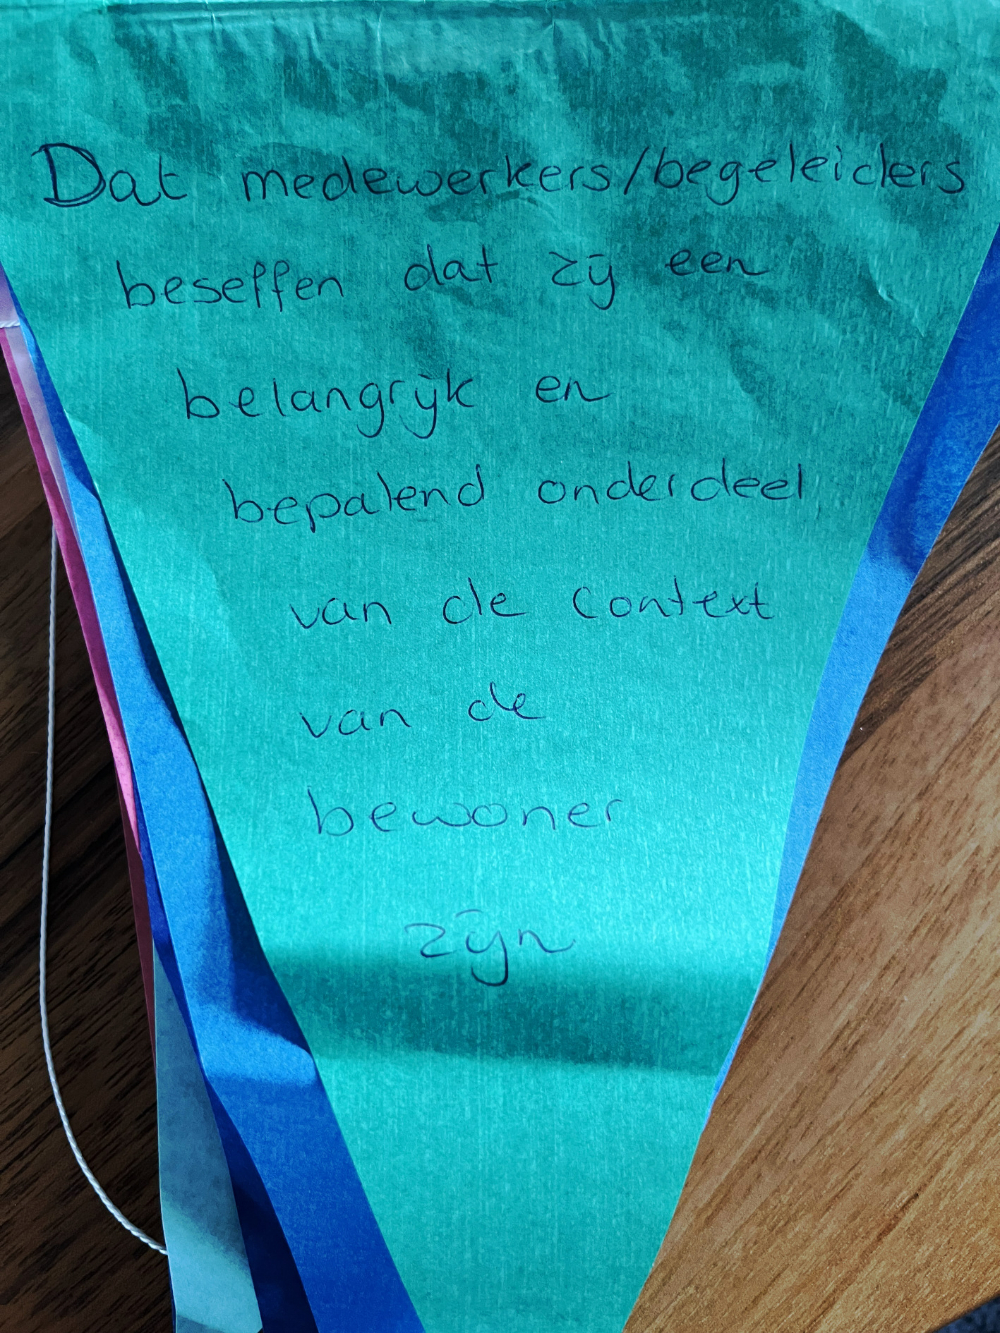 Dat medewerkers/begeleiders
beseffen dat zij een
belangrijk en
bepalend onderdeel
van de context
van de
bewoner
zijn